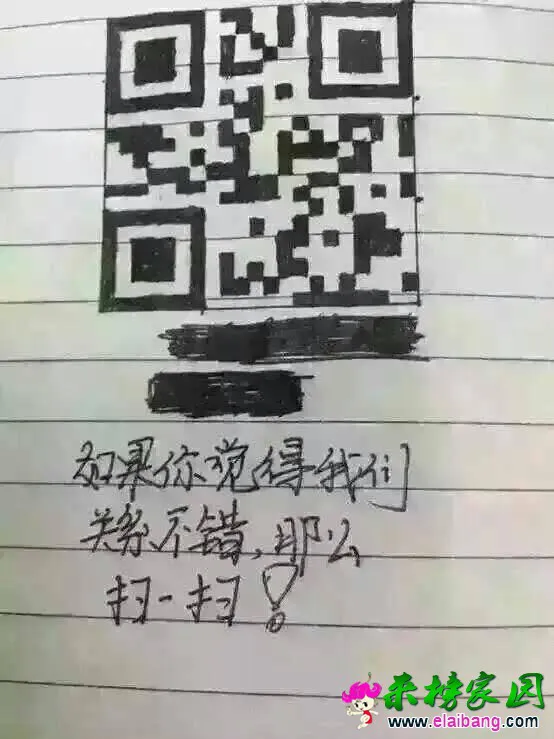 如果你觉得我们
关系不错,那么
扫一扫!
来榜家园
www.elaibang.com